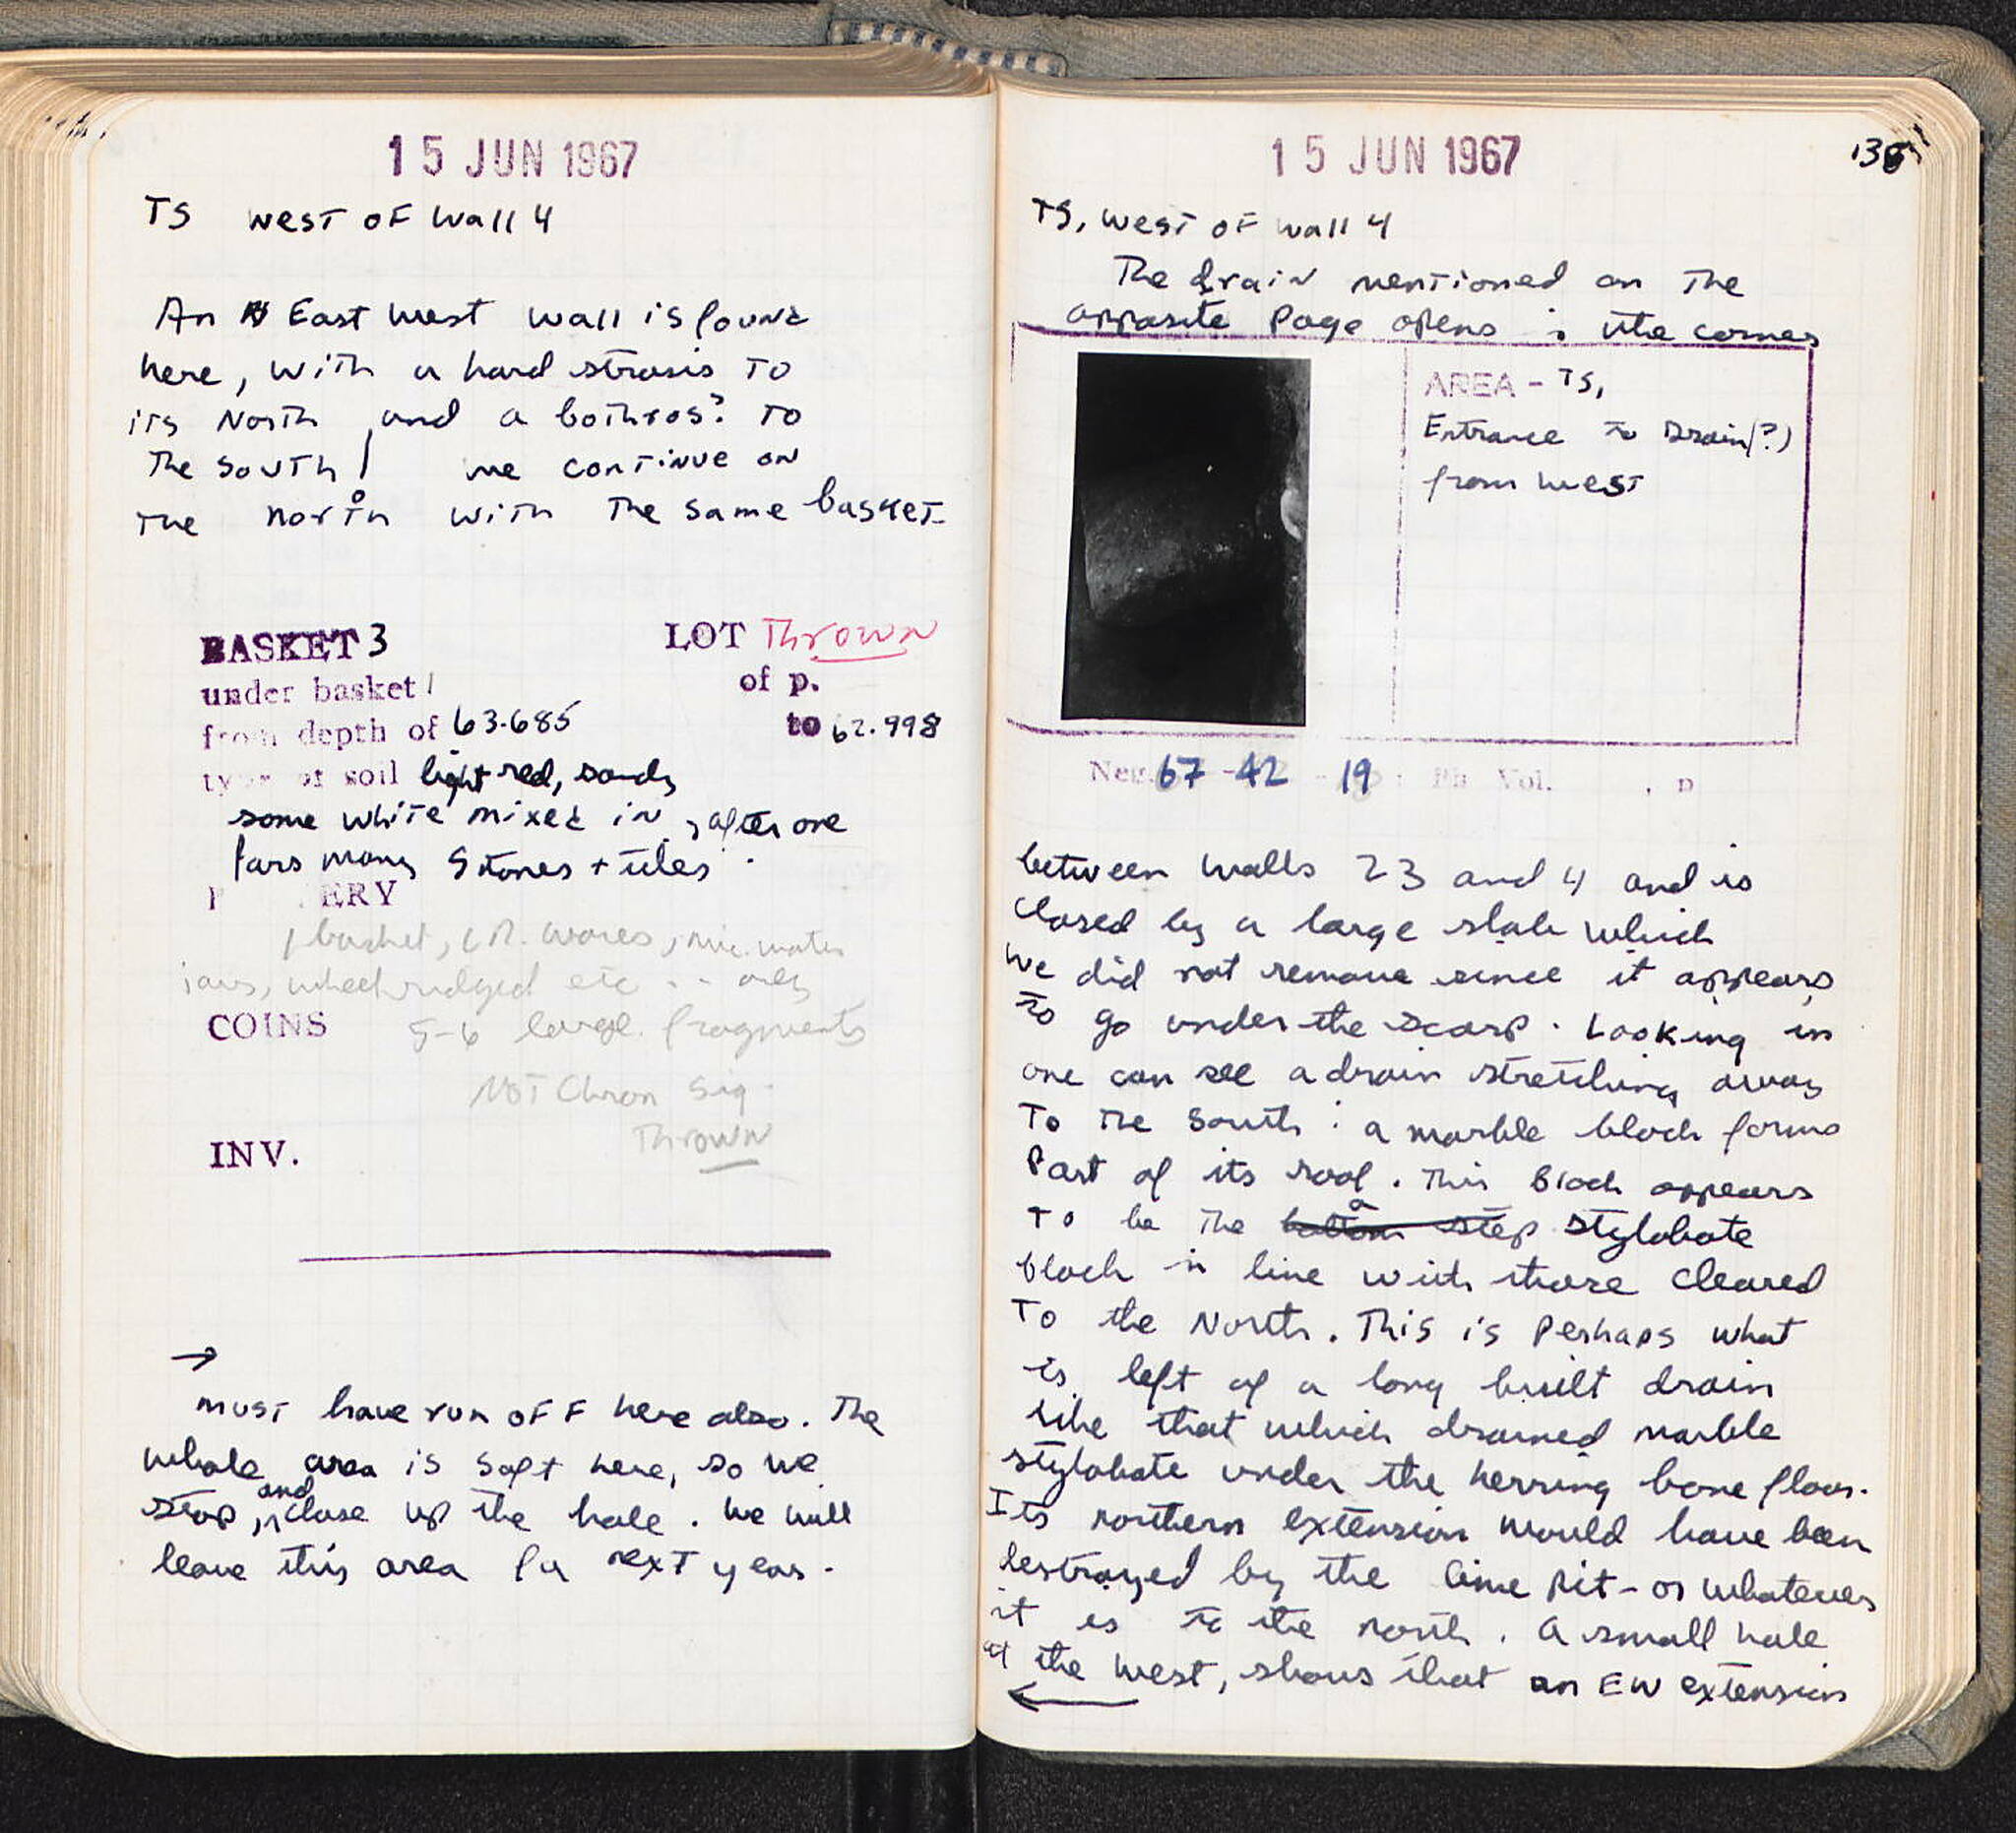 15 JUN 1967
TS west of Wall 4
An East West wall is found
here, with a hard strosis to
its North, and a bothros? to
the South. we continue on
the north with the same basket.
BASKET 3 LOT Thrown
under basket 1 of p.
from depth of 63.685 to 62.998
type of soil light red, sandy
some white mixed in, after one
pass many stones + tiles.
ERY
1 basket, LR. wares, mic. water
jars, wheel ridged etc .. only
COINS 5-6 large fragments
NOT Chron Sig.
Thrown
INV.
→
must have run off here also. The
whole area is soft here, so we
stop, and close up the hole. We will
leave this area for next year.
15 JUN 1967
136
TS, west of Wall 4
The drain mentioned on the
opposite page opens in the corner
AREA - TS,
Entrance to Drain(?)
from west
Neg. 67 - 42 - 19 : Ph Vol. , p
between walls 23 and 4 and is
closed by a large slab which
we did not remove since it appears
to go under the scarp. Looking in
one can see a drain stretching away
to the South: a marble block forms
part of its roof. This Block appears
to be the bottom step a stylobate
block in line with those cleared
to the North. This is perhaps what
is left of a long built drain
like that which drained marble
stylobate under the herring bone floor.
Its northern extension would have been
destroyed by the lime pit - or whatever
it is to the north. A small hole
at the west, shows that an EW extension
←